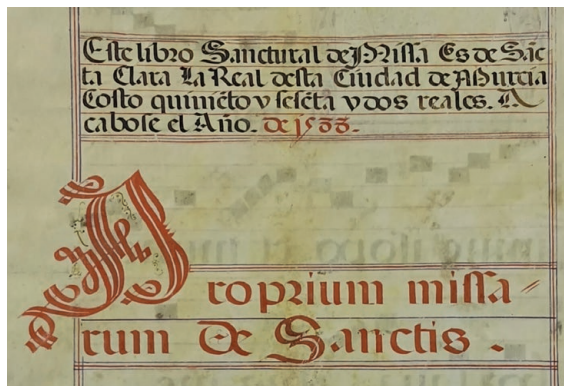 Este libro Sanctural de Missa Es de Sāc
ta Clara La Real desta Ciudad de Murcia
Costo quiniēto y sesēta y dos reales. A
cabose el Año. de 1533.
Proprium missa
rum De Sanctis.